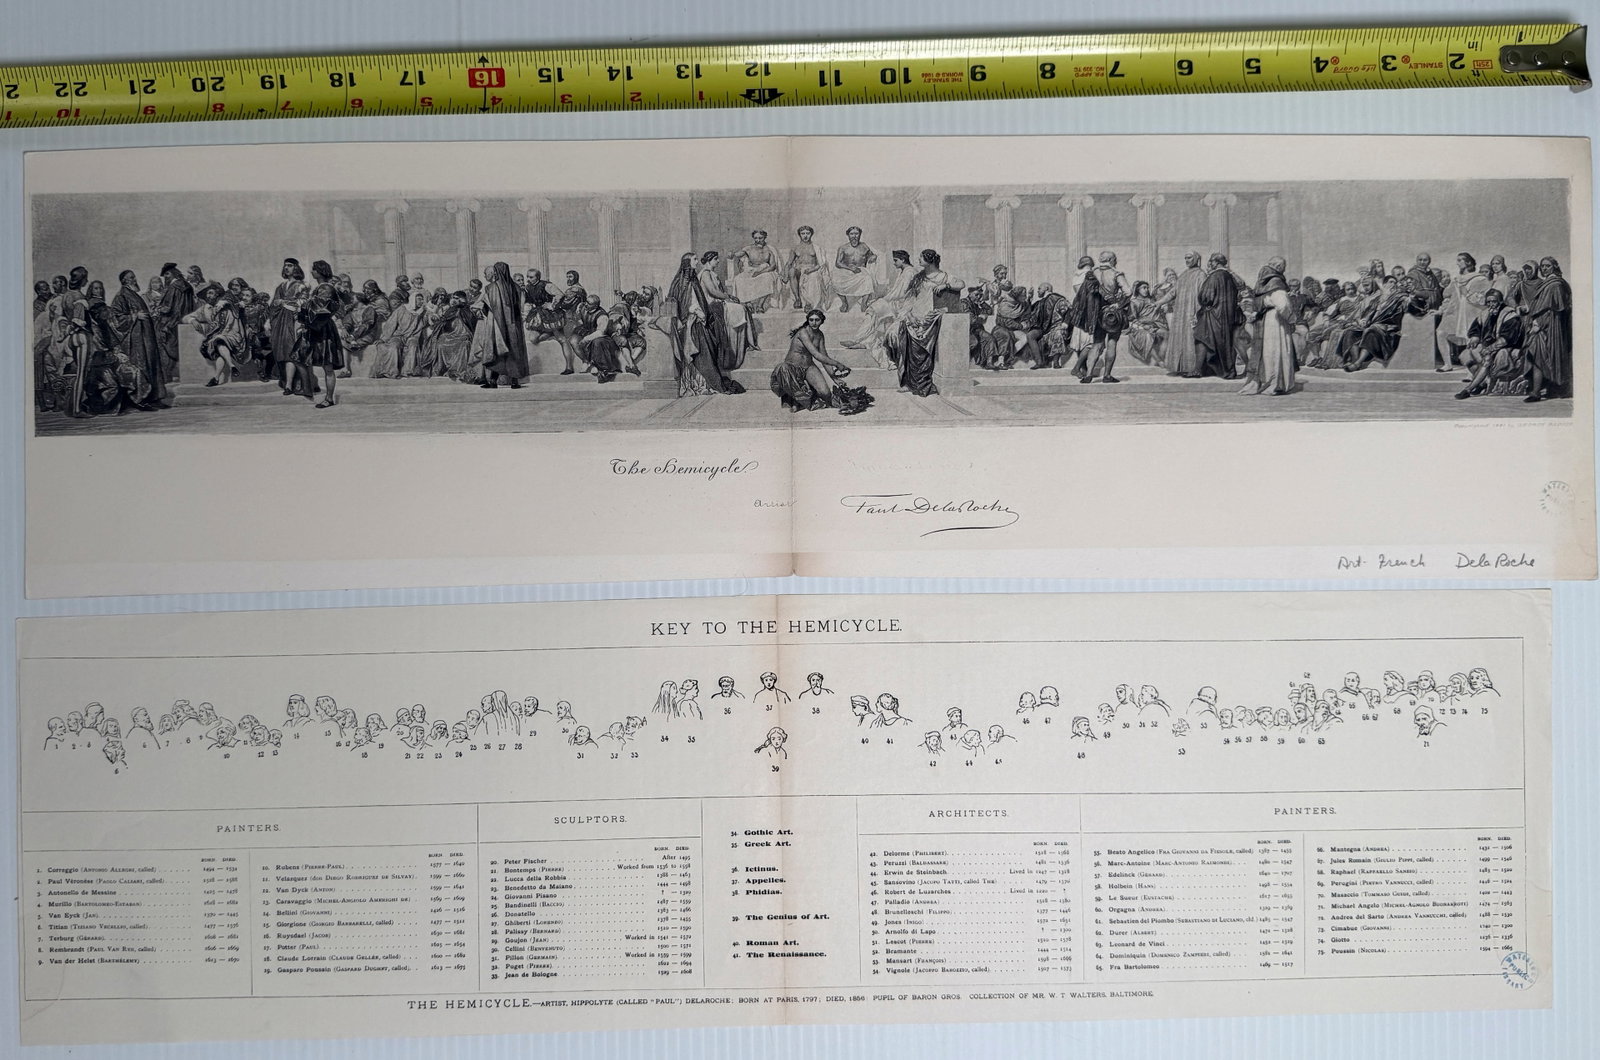 2 22 21 20 19 18 17 16 15 14 13 12 11 10 9 8 7 6 5 4 3 2 1
10 9 8 7 6 5 4 3 2 1 1F
STANLEY
The Hemicycle.
Artist
Paul DelaRoche
Art- French DelaRoche
KEY TO THE HEMICYCLE.
PAINTERS.
BORN. DIED.
1. Correggio (Antonio Allegri, called) 1494 — 1534
2. Paul Véronèse (Paolo Caliari, called) 1528 — 1588
3. Antonello de Messine
4. Murillo (Bartolomeo-Estaban) 1618 — 1682
5. Van Eyck (Jan)
6. Titian (Tiziano Vecellio, called) 1477 — 1576
7. Terburg (Gérard) 1608 — 1681
8. Rembrandt (Paul Van Ryn, called) 1606 — 1669
9. Van der Helst (Barthélemy) 1613 — 1670
BORN. DIED.
10. Rubens (Pierre-Paul) 1577 — 1640
11. Velasquez (don Diego Rodriguez de Silvay) 1599 — 1660
12. Van Dyck (Anton) 1599 — 1641
13. Caravaggio (Michel-Angiolo Amerighi de) 1569 — 1609
14. Bellini (Giovanni) 1426 — 1516
15. Giorgione (Giorgio Barbarelli, called) 1477 — 1511
16. Ruysdael (Jacob) 1630 — 1681
17. Potter (Paul) 1625 — 1654
18. Claude Lorrain (Claude Gellée, called) 1600 — 1682
19. Gasparo Poussin (Gaspard Dughet, called) 1613 — 1675
SCULPTORS.
BORN. DIED.
20. Peter Fischer After 1495
21. Bontemps (Pierre) Worked from 1536 to 1558
22. Lucca della Robbia 1388 — 1463
23. Benedetto da Maiano 1444 — 1498
24. Giovanni Pisano ? — 1320
25. Bandinelli (Baccio) 1487 — 1559
26. Donatello 1383 — 1466
27. Ghiberti (Lorenzo) 1378 — 1455
28. Palissy (Bernard) 1510 — 1590
29. Goujon (Jean) Worked in 1541 — 1572
30. Cellini (Benvenuto) 1500 — 1571
31. Pillon (Germain) Worked in 1559 — 1599
32. Puget (Pierre) 1622 — 1694
33. Jean de Bologne 1529 — 1608
34. Gothic Art.
35. Greek Art.
36. Ictinus.
37. Appelles.
38. Phidias.
39. The Genius of Art.
40. Roman Art.
41. The Renaissance.
ARCHITECTS.
BORN. DIED.
42. Delorme (Philibert) 1518 — 1566
43. Peruzzi (Baldassare) 1481 — 1536
44. Erwin de Steinbach Lived in 1247 — 1318
45. Sansovino (Jacopo Tatti, called The) 1479 — 1570
46. Robert de Luzarches Lived in 1220 — ?
47. Palladio (Andrea) 1518 — 1580
48. Brunelleschi (Filippo) 1377 — 1446
49. Jones (Inigo) 1572 — 1651
50. Arnolfo di Lapo ? — 1300
51. Lescot (Pierre) 1510 — 1578
52. Bramante 1444 — 1514
53. Mansart (François) 1598 — 1666
54. Vignole (Jacopo Barozzio, called) 1507 — 1573
PAINTERS.
BORN. DIED.
55. Beato Angelico (Fra Giovanni da Fiesole, called) 1387 — 1455
56. Marc-Antoine (Marc-Antonio Raimondi) 1480 — 1547
57. Edelinck (Gérard) 1640 — 1707
58. Holbein (Hans) 1498 — 1554
59. Le Sueur (Eustache) 1617 — 1655
60. Orgagna (Andrea) 1329 — 1389
61. Sebastien del Piombo (Sebastiano di Luciano, cld.) 1485 — 1547
62. Durer (Albert) 1471 — 1528
63. Leonard de Vinci 1452 — 1519
64. Dominiquin (Domenico Zampieri, called) 1581 — 1641
65. Fra Bartolomeo 1469 — 1517
BORN. DIED.
66. Mantegna (Andrea) 1431 — 1506
67. Jules Romain (Giulio Pippi, called) 1499 — 1546
68. Raphael (Raffaello Sanzio) 1483 — 1520
69. Perugini (Pietro Vannucci, called) 1446 — 1524
70. Masaccio (Tommaso Guidi, called) 1402 — 1443
71. Michael Angelo (Michel-Agnolo Buonarroti) 1474 — 1563
72. Andrea del Sarto (Andrea Vannucchi, called) 1488 — 1530
73. Cimabue (Giovanni) 1240 — 1300
74. Giotto 1276 — 1336
75. Poussin (Nicolas) 1594 — 1665
THE HEMICYCLE.—ARTIST, HIPPOLYTE (CALLED "PAUL") DELAROCHE; BORN AT PARIS, 1797; DIED, 1856; PUPIL OF BARON GROS. COLLECTION OF MR. W. T. WALTERS, BALTIMORE.